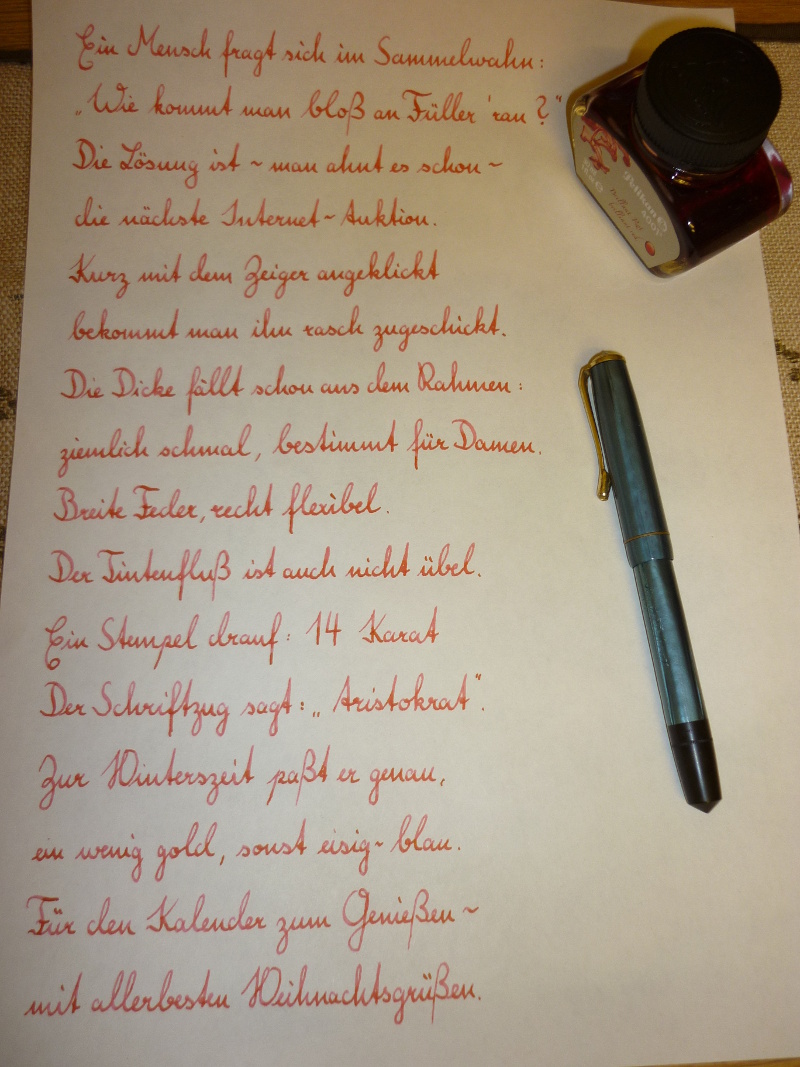 Ein Mensch fragt sich im Sammelwahn:
„Wie kommt man bloß an Füller 'ran?"
Die Lösung ist ~ man ahnt es schon ~
die nächste Internet~Auktion.
Kurz mit dem Zeiger angeklickt
bekommt man ihn rasch zugeschickt.
Die Dicke fällt schon aus dem Rahmen:
ziemlich schmal, bestimmt für Damen.
Breite Feder, recht flexibel.
Der Tintenfluß ist auch nicht übel.
Ein Stempel drauf: 14 Karat
Der Schriftzug sagt: „Aristokrat".
Zur Winterszeit paßt er genau,
ein wenig gold, sonst eisig~blau.
Für den Kalender zum Genießen ~
mit allerbesten Weihnachtsgrüßen.
Pelikan
4001